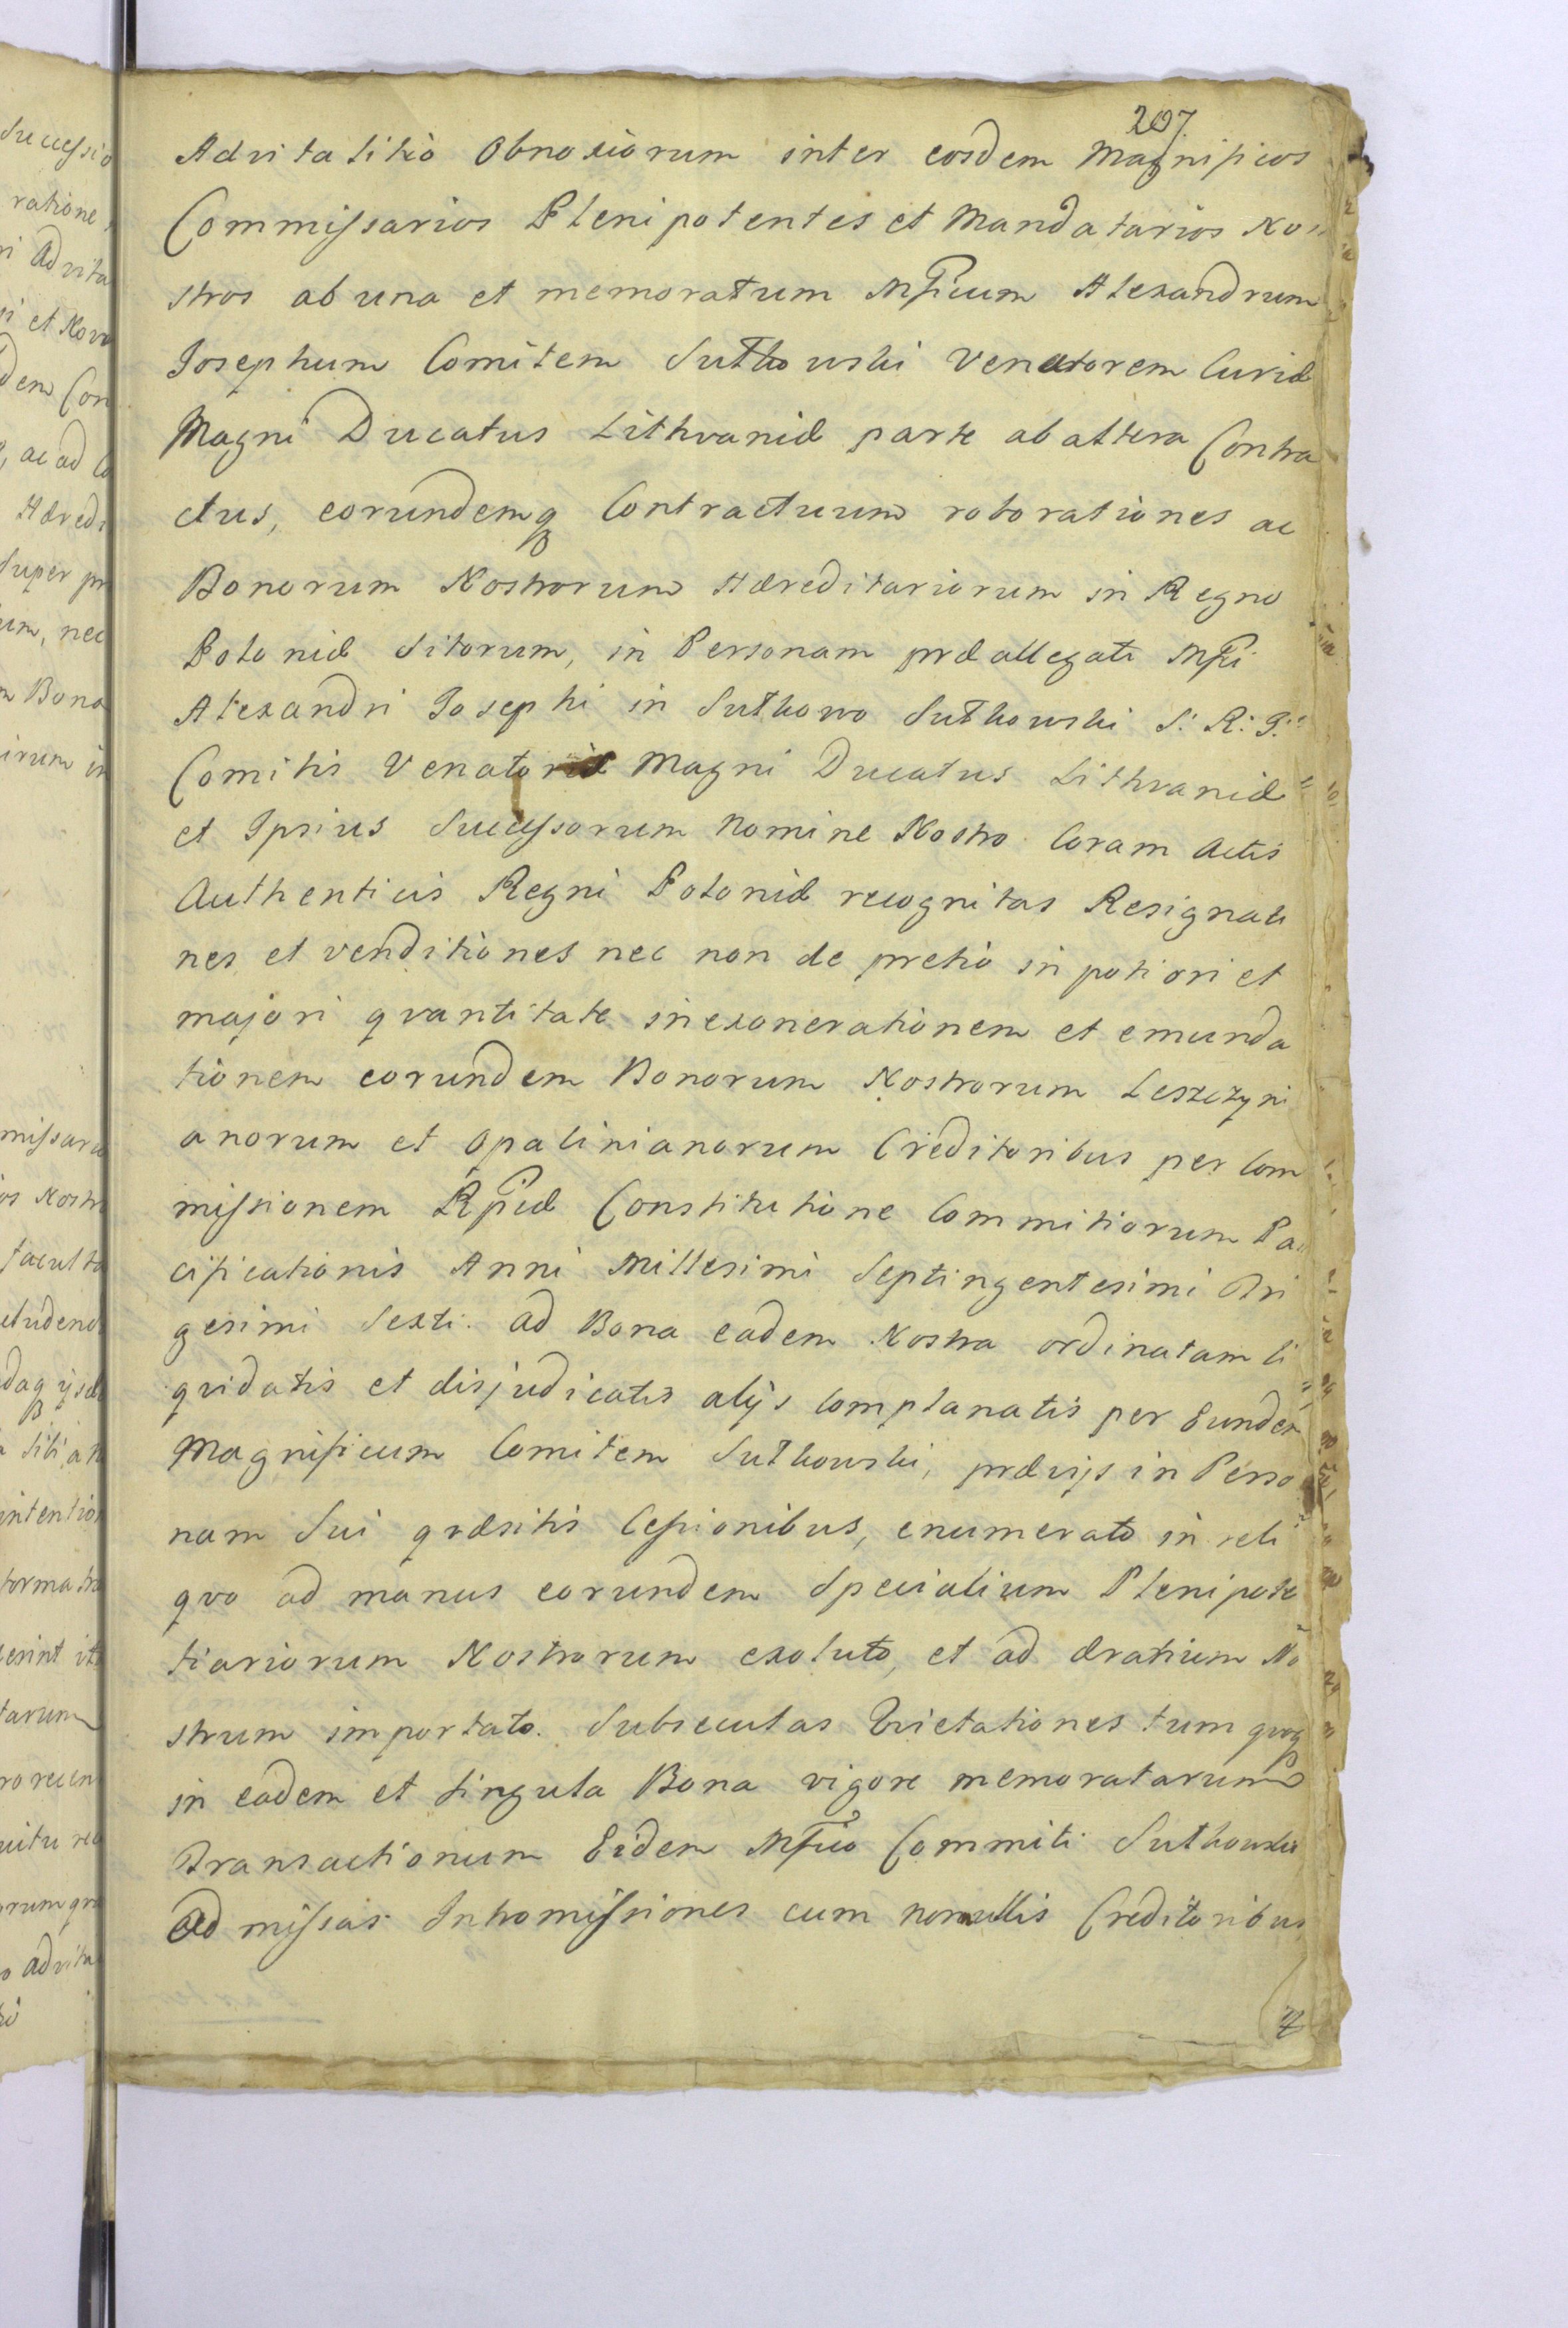 207.
Advitalitio obnoxiorum inter eosdem Magnificos
Commissarios Plenipotentes et Mandatarios No
stros ab una et memoratum Mficum Alexandrum
Josephum Comitem Sułkowski Venatorem Curiæ
Magni Ducatus Lithvaniæ parte ab altera Contra
ctus, eorundemq Contractuum roborationes ac
Bonorum Nostrorum Hæreditariorum in Regno
Poloniæ sitorum, in Personam præallegati Mfci
Alexandri Josephi in Sułkowo Sułkowski S: R: J:
Comitis Venatoris Magni Ducatus Lithvaniæ
et Ipsius Successorum Nomine Nostro Coram Actis
Authenticis Regni Poloniæ recognitas Resignatio
nes et venditiones nec non de pretio in potiori et
majori qvantitate in exonerationem et emunda
tionem eorundem Bonorum Nostrorum Leszczyni
anorum et Opalinianorum Creditoribus per Com
missionem Rpcæ Constitutione Commitiorum Pa
cificationis Anni Millesimi Septingentesimi Tri
gesimi Sexti ad Bona eadem Nostra ordinatam li
qvidatis et disjudicatis alijs complanatis per Eundem
Magnificum Comitem Sułkowski, prævijs in Perso
nam Sui qvæsitis Cessionibus, enumerato in reli
qvo ad manus eorundem Specialium Plenipote
tiariorum Nostrorum exoluto, et ad ærarium No
strum importato. Subsecutas Qvietationes tum qvoq
in eadem et singula Bona vigore memoratarum
Transactionum Eidem Mfico Commiti Sułkowski
ad missas Intromissiones cum nonullis Creditoribus
Successio
ratione
ri Advita
dem Con
ac ad
Hæredi
Super pr
um, nec
Bona
irum in
missari
os Nostr
facult
intention
forma
tarum
advita